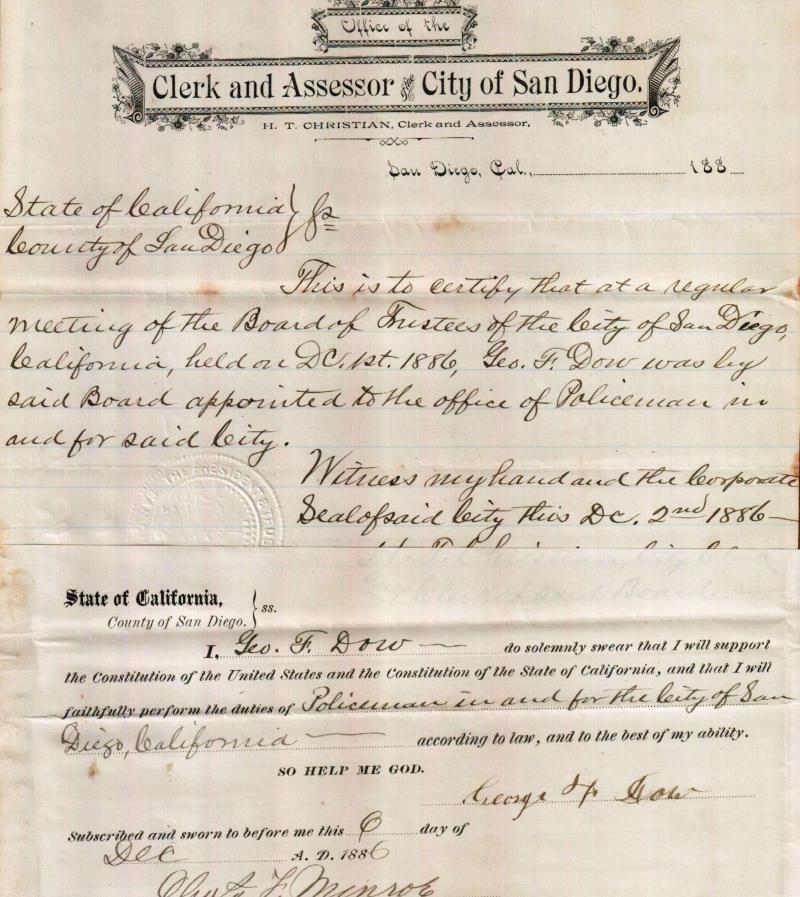 Office of the
Clerk and Assessor of the City of San Diego.
H. T. CHRISTIAN, Clerk and Assessor.
San Diego, Cal., 188
State of California } ss
County of San Diego
This is to certify that at a regular
meeting of the Board of Trustees of the City of San Diego,
California, held on Dc. 1st. 1886, Geo. F. Dow was by
said Board appointed to the office of Policeman in
and for said City.
Witness my hand and the Corporate
Seal of said City this Dc. 2nd 1886—
THE PRESIDENT & TRUS
State of California, } ss.
County of San Diego.
I, Geo. F. Dow — do solemnly swear that I will support
the Constitution of the United States and the Constitution of the State of California, and that I will
faithfully perform the duties of Policeman in and for the City of San
Diego, California — according to law, and to the best of my ability.
SO HELP ME GOD.
George F Dow
Subscribed and sworn to before me this 6 day of
Dec A. D. 1886
F. Monroe